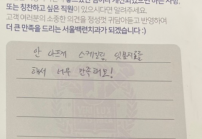 또는 칭찬하고 싶은 직원이 있으시다면 알려주세요.
고객 여러분의 소중한 의견을 정성껏 귀담아듣고 반영하여
더 큰 만족을 드리는 서울백련치과가 되겠습니다 :)
안 아프게 스케일링
너무 만족해요!